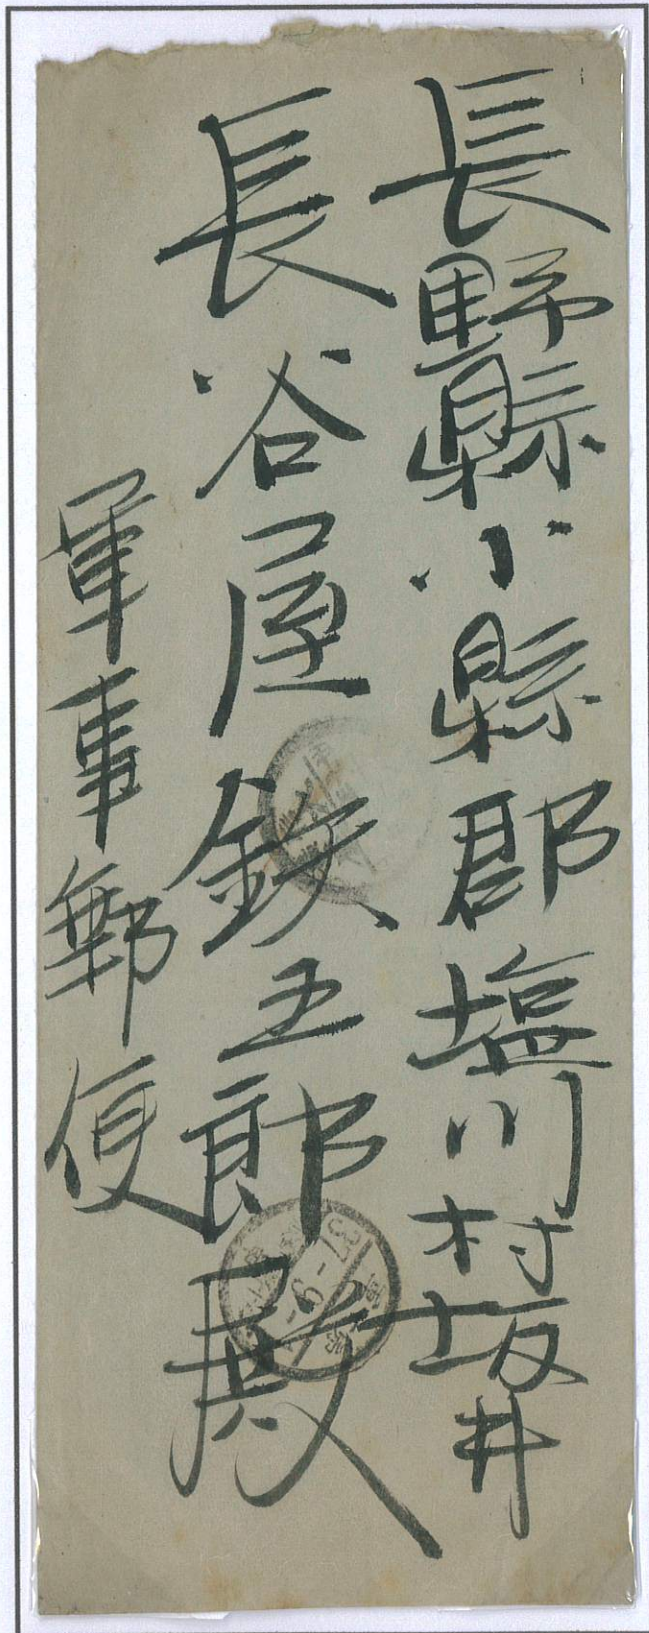 長野縣小縣郡塩川村坂井
長谷屋鉄五郎殿
軍事郵便
37-9-